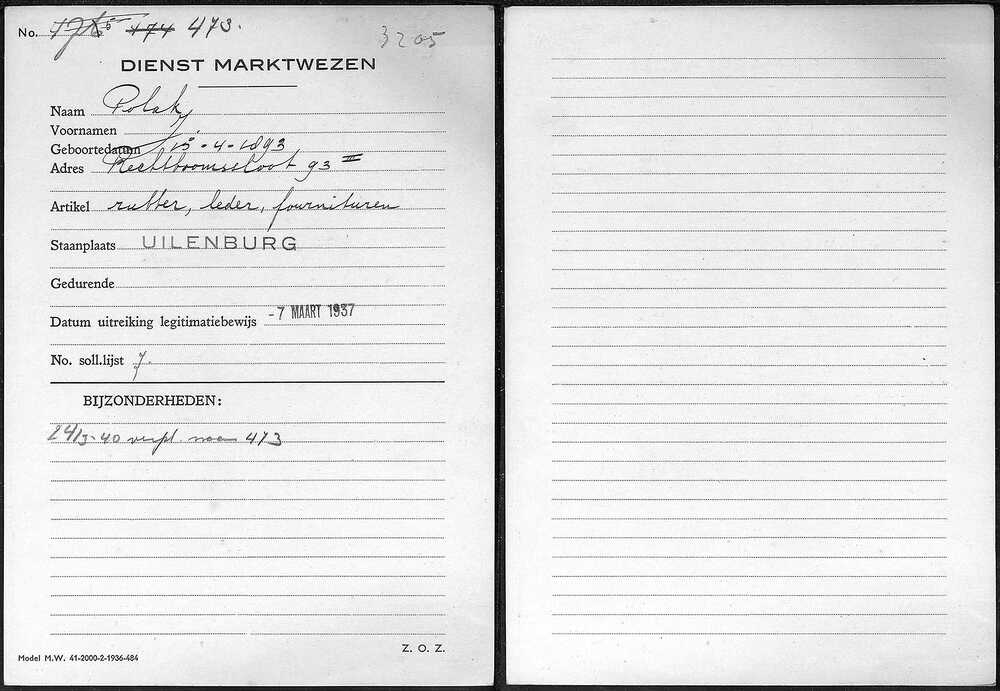 No. 174 473.
3205
DIENST MARKTWEZEN
Naam Polak,
Voornamen J.
Geboortedatum 15-4-1893
Adres Rechtboomssloot 93 II
Artikel rubber, leder, fournituren
Staanplaats UILENBURG
Gedurende
Datum uitreiking legitimatiebewijs -7 MAART 1937
No. soll.lijst 7.
BIJZONDERHEDEN:
24/3-40 verpl. naar 473
Z. O. Z.
Model M.W. 41-2000-2-1936-484